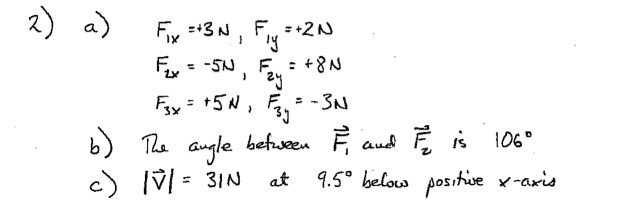 2) a) F₁ₓ = +3 N , F₁ᵧ = +2 N
F₂ₓ = -5N , F₂ᵧ = +8 N
F₃ₓ = +5 N , F₃ᵧ = -3N
b) The angle between F⃗₁ and F⃗₂ is 106°
c) |V⃗| = 31N at 9.5° below positive x-axis